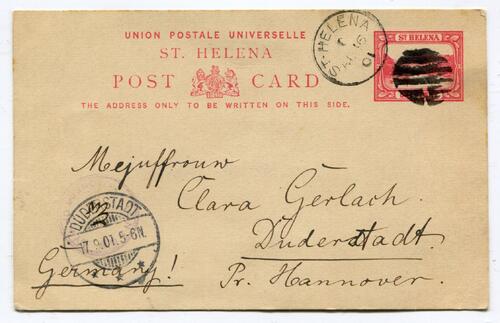 UNION POSTALE UNIVERSELLE
ST. HELENA
POST CARD
THE ADDRESS ONLY TO BE WRITTEN ON THIS SIDE.
ST. HELENA
01
ST HELENA
Mejuffrouw
Clara Gerlach.
Duderstadt.
Pr. Hannover.
Germany!
DUDERSTADT
17.9.01.5-6N.